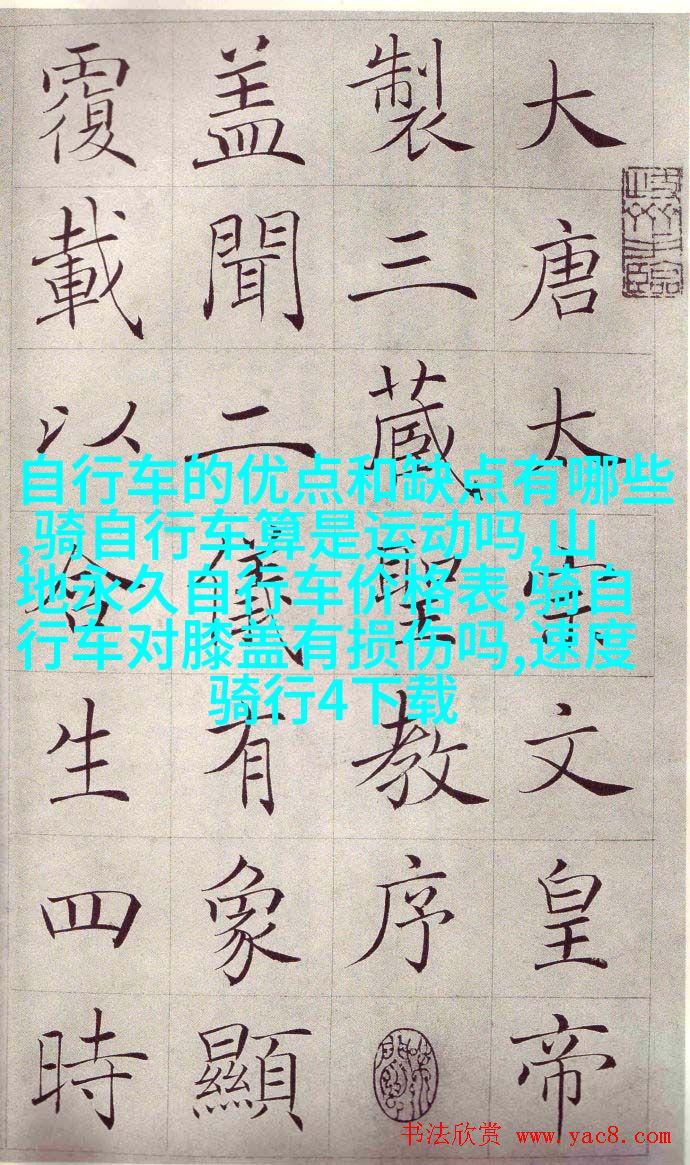 大唐太宗文皇帝
製三藏聖教序
盖聞二儀有象顯
覆載以含生四時
自行车的优点和缺点有哪些
,骑自行车算是运动吗,山
地永久自行车价格表,骑自
行车对膝盖有损伤吗,速度
骑行4下载
书法欣赏 www.yac8.com